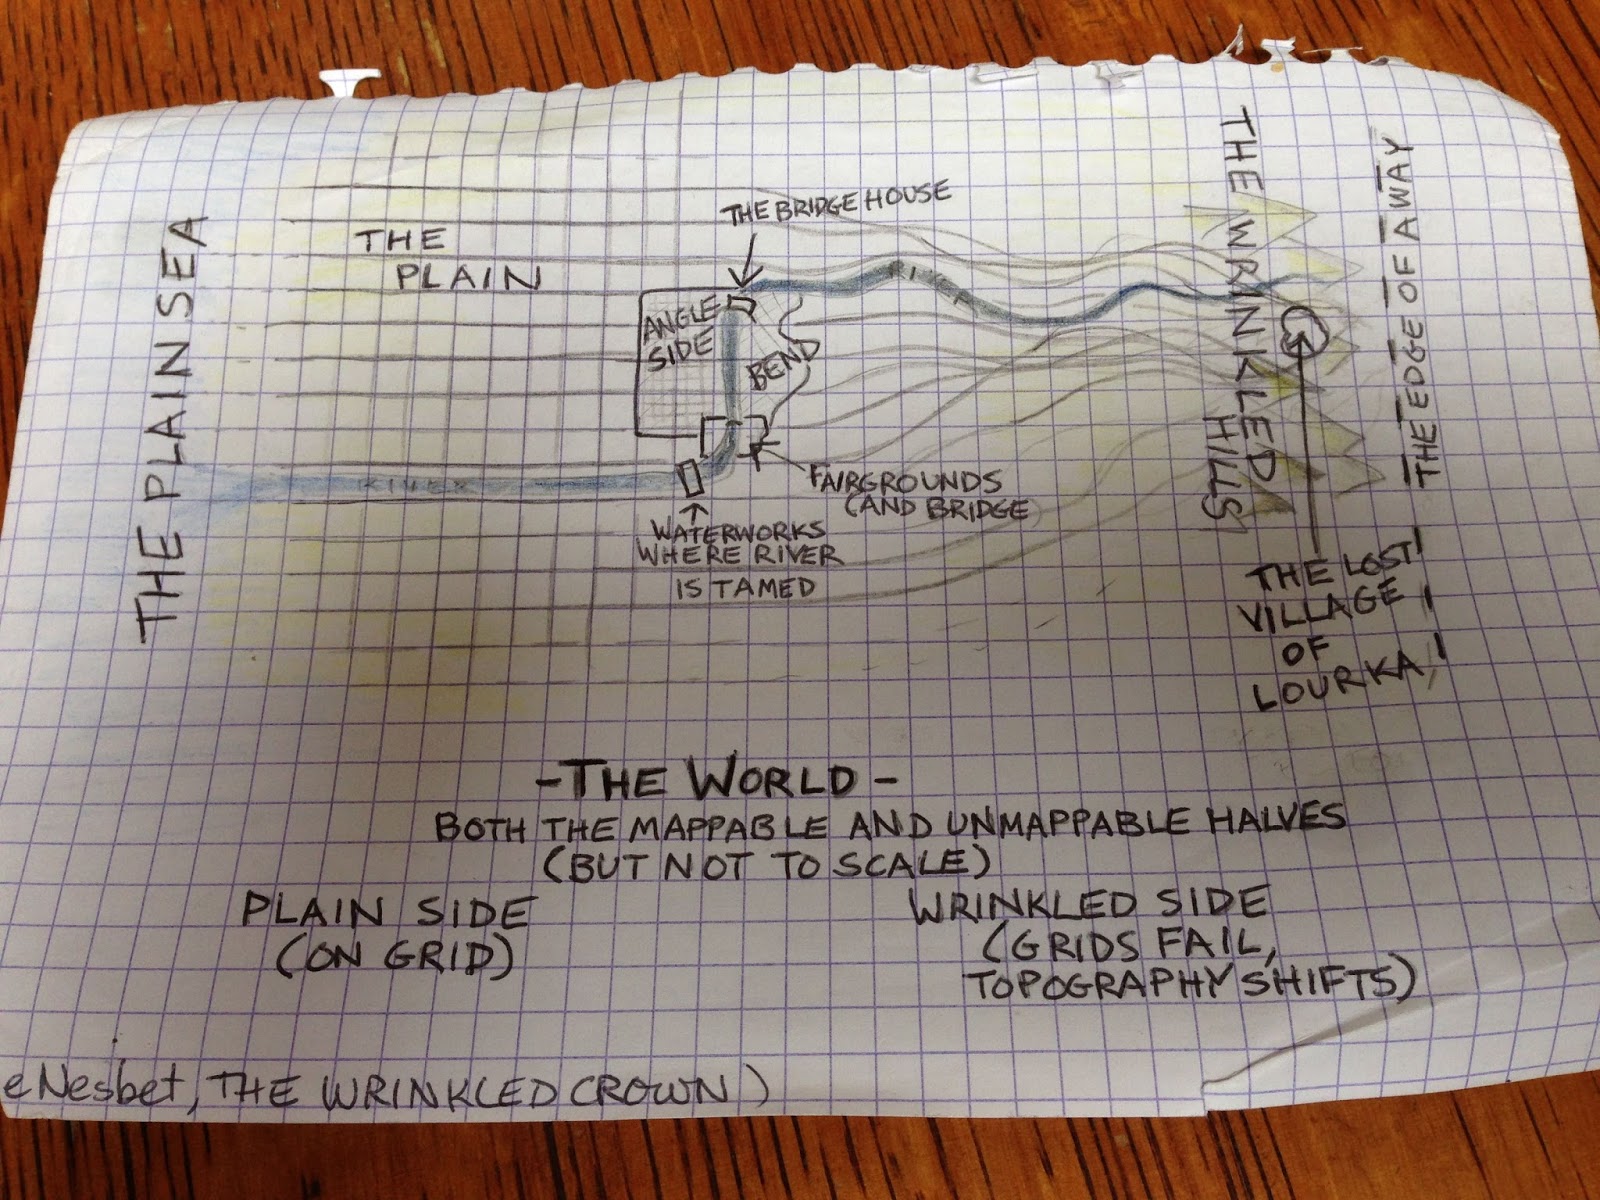 THE PLAIN SEA
THE
PLAIN
THE BRIDGE HOUSE
ANGLE
SIDE
BEND
RIVER
FAIRGROUNDS
(AND BRIDGE
WATERWORKS
WHERE RIVER
IS TAMED
THE WRINKLED
HILLS
THE EDGE OF AWAY
THE LOST!
VILLAGE!
OF
LOURKA!
-THE WORLD-
BOTH THE MAPPABLE AND UNMAPPABLE HALVES
(BUT NOT TO SCALE)
PLAIN SIDE
(ON GRID)
WRINKLED SIDE
(GRIDS FAIL,
TOPOGRAPHY SHIFTS)
e Nesbet, THE WRINKLED CROWN)